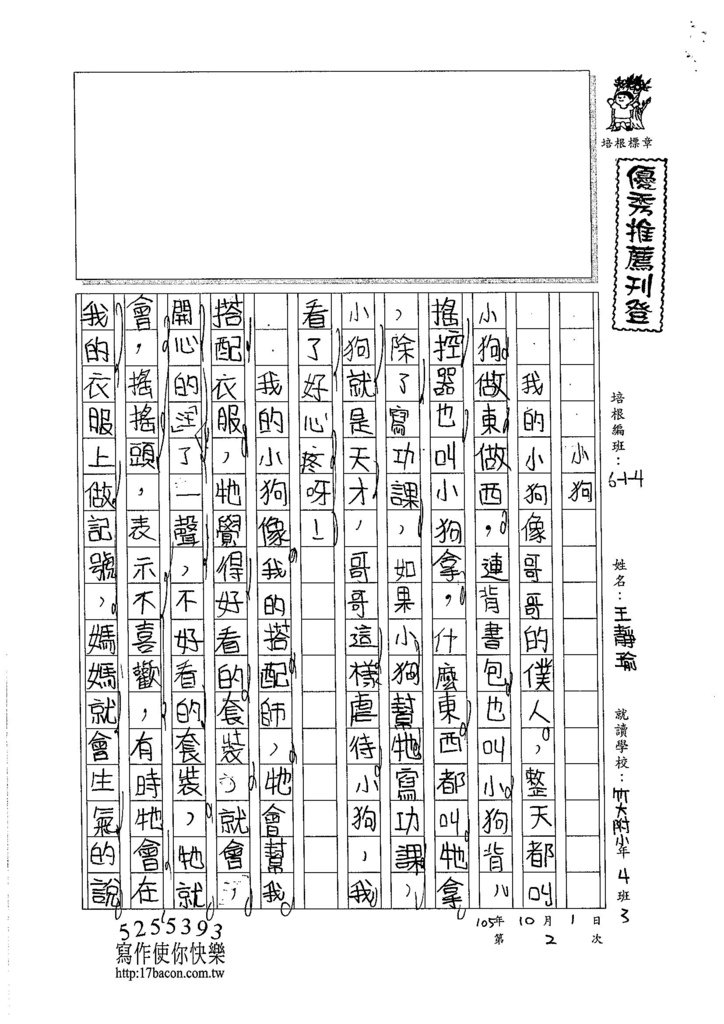 培根標章
優秀推薦刊登
培根編班：6-1-4
姓名：王靜瑜
就讀學校：竹大附小 4年3班
105年10月1日
第2次
小狗
我的小狗像哥哥的僕人，整天都叫
小狗做東做西，連背書包也叫小狗背，
搖控器也叫小狗拿，什麼東西都叫牠拿
，除了寫功課，如果小狗幫牠寫功課，
小狗就是天才，哥哥這樣虐待小狗，我
看了好心疼呀！
我的小狗像我的搭配師，牠會幫我
搭配衣服，牠覺得好看的套裝，就會
開心的汪了一聲，不好看的套裝，牠就
會，搖搖頭，表示不喜歡，有時牠會在
我的衣服上做記號，媽媽就會生氣的說
5255393
寫作使你快樂
http:17bacon.com.tw